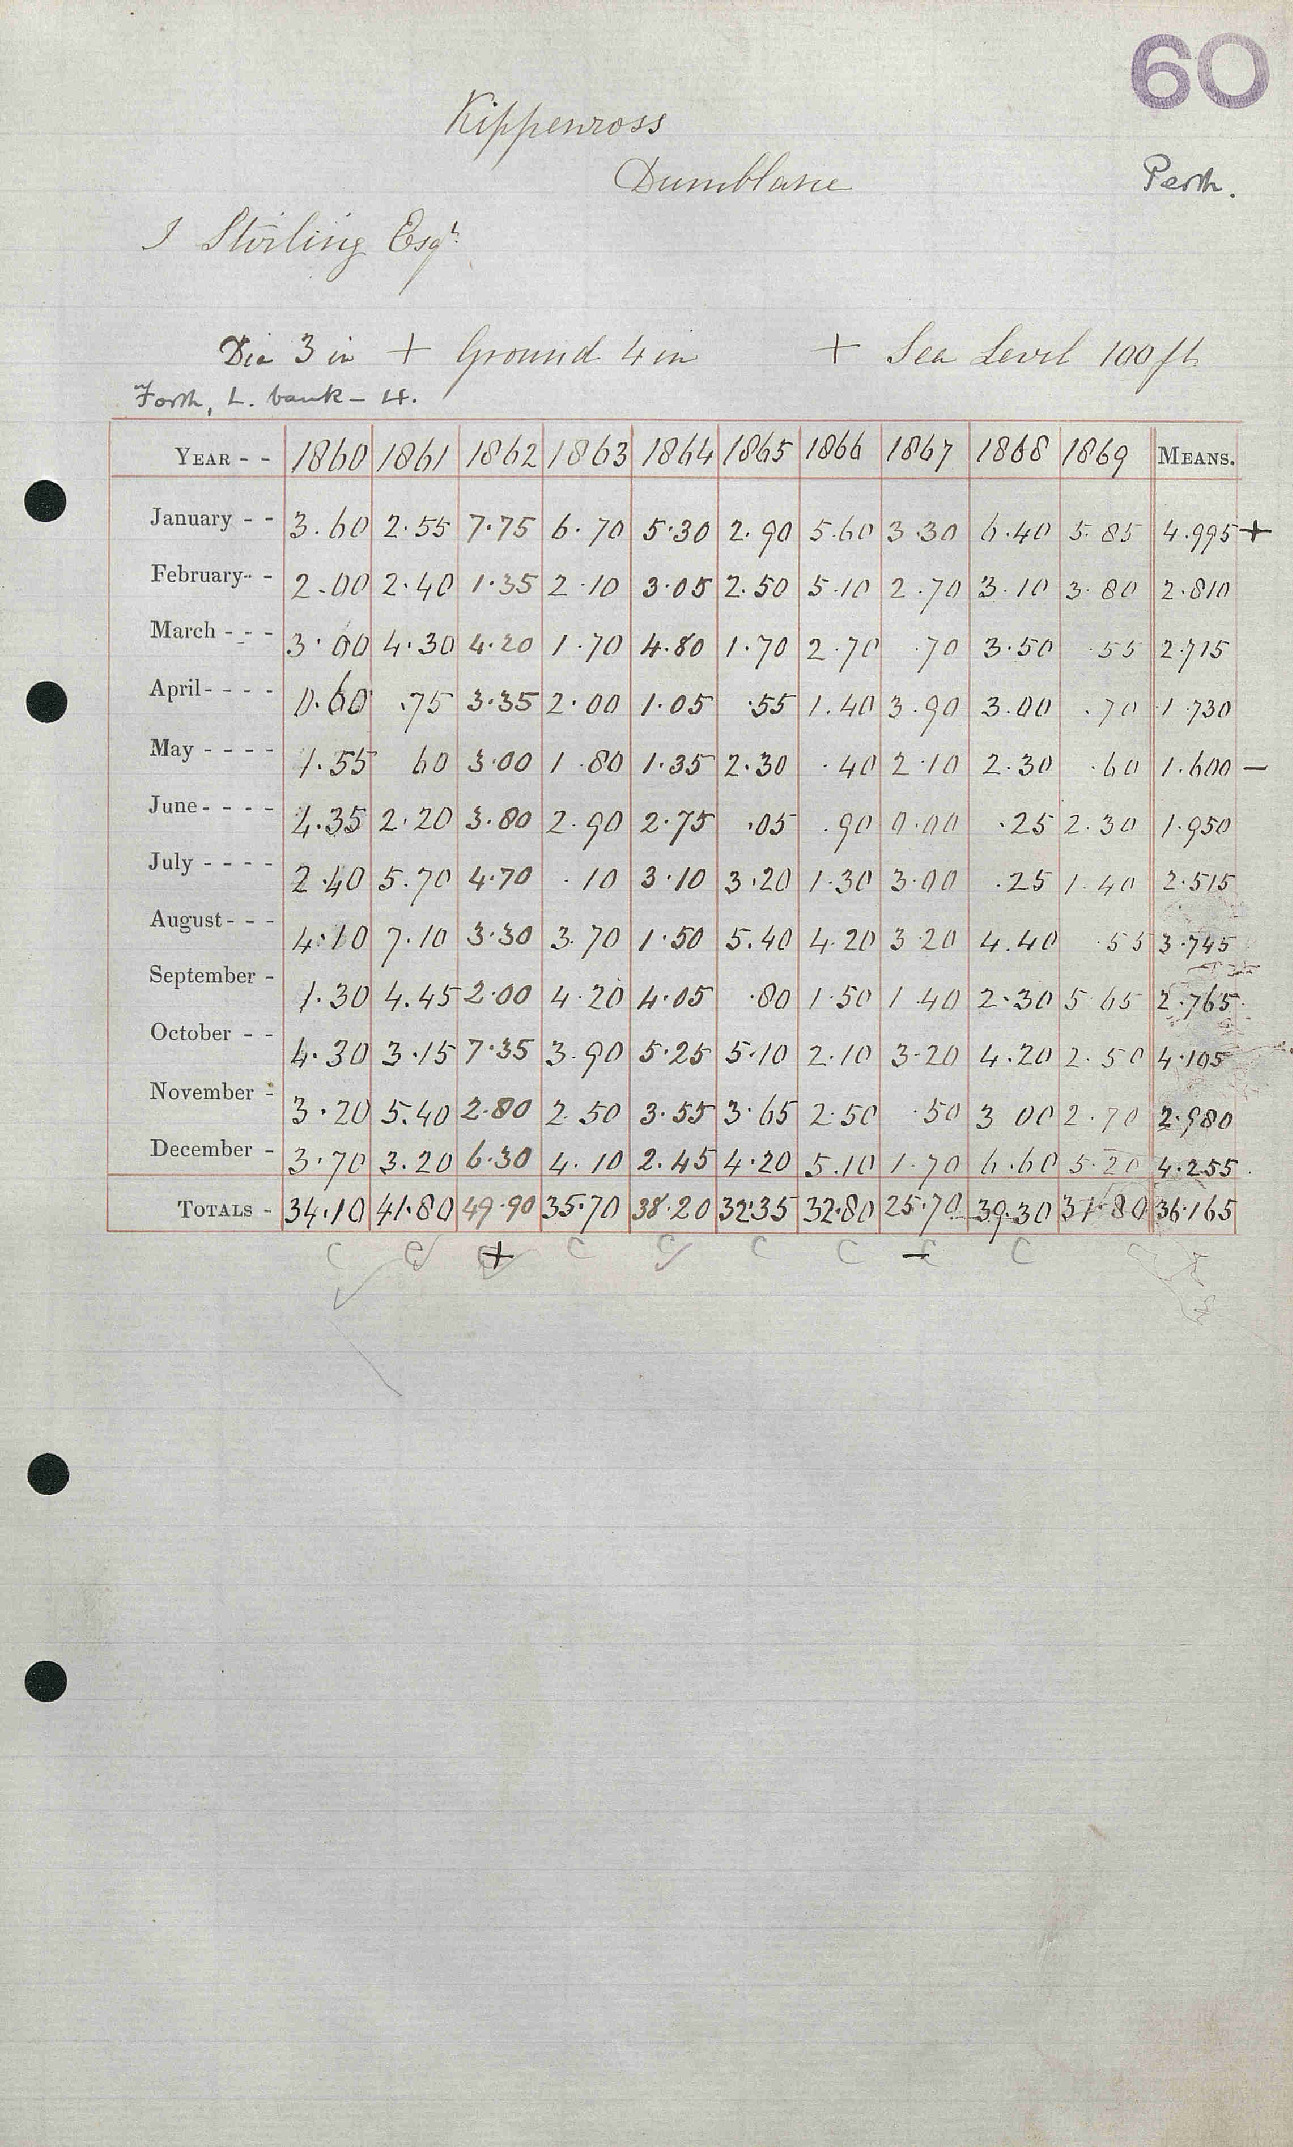 60
Kippenross
Dumblane
Perth.
J Stirling Esqr.
Dia 3 in + Ground 4 in + Sea Level 100 ft.
Forth, L. bank - 4.
YEAR - - 1860 1861 1862 1863 1864 1865 1866 1867 1868 1869 MEANS.
January - - 3.60 2.55 7.75 6.70 5.30 2.90 5.60 3.30 6.40 5.85 4.995 +
February - - 2.00 2.40 1.35 2.10 3.05 2.50 5.10 2.70 3.10 3.80 2.810
March - - - 3.00 4.30 4.20 1.70 4.80 1.70 2.70 .70 3.50 .55 2.715
April - - - - 0.60 .75 3.35 2.00 1.05 .55 1.40 3.90 3.00 .70 1.730
May - - - - 1.55 60 3.00 1.80 1.35 2.30 .40 2.10 2.30 .60 1.600 —
June - - - - 4.35 2.20 3.80 2.90 2.75 .05 .90 0.00 .25 2.30 1.950
July - - - - 2.40 5.70 4.70 .10 3.10 3.20 1.30 3.00 .25 1.40 2.515
August - - - 4.10 7.10 3.30 3.70 1.50 5.40 4.20 3.20 4.40 .55 3.745
September - 1.30 4.45 2.00 4.20 4.05 .80 1.50 1.40 2.30 5.65 2.765
October - - 4.30 3.15 7.35 3.90 5.25 5.10 2.10 3.20 4.20 2.50 4.105
November - 3.20 5.40 2.80 2.50 3.55 3.65 2.50 .50 3.00 2.70 2.980
December - 3.70 3.20 6.30 4.10 2.45 4.20 5.10 1.70 6.60 5.20 4.255
TOTALS - 34.10 41.80 49.90 35.70 38.20 32.35 32.80 25.70 39.30 31.80 36.165
C C C + C C C C C — C C